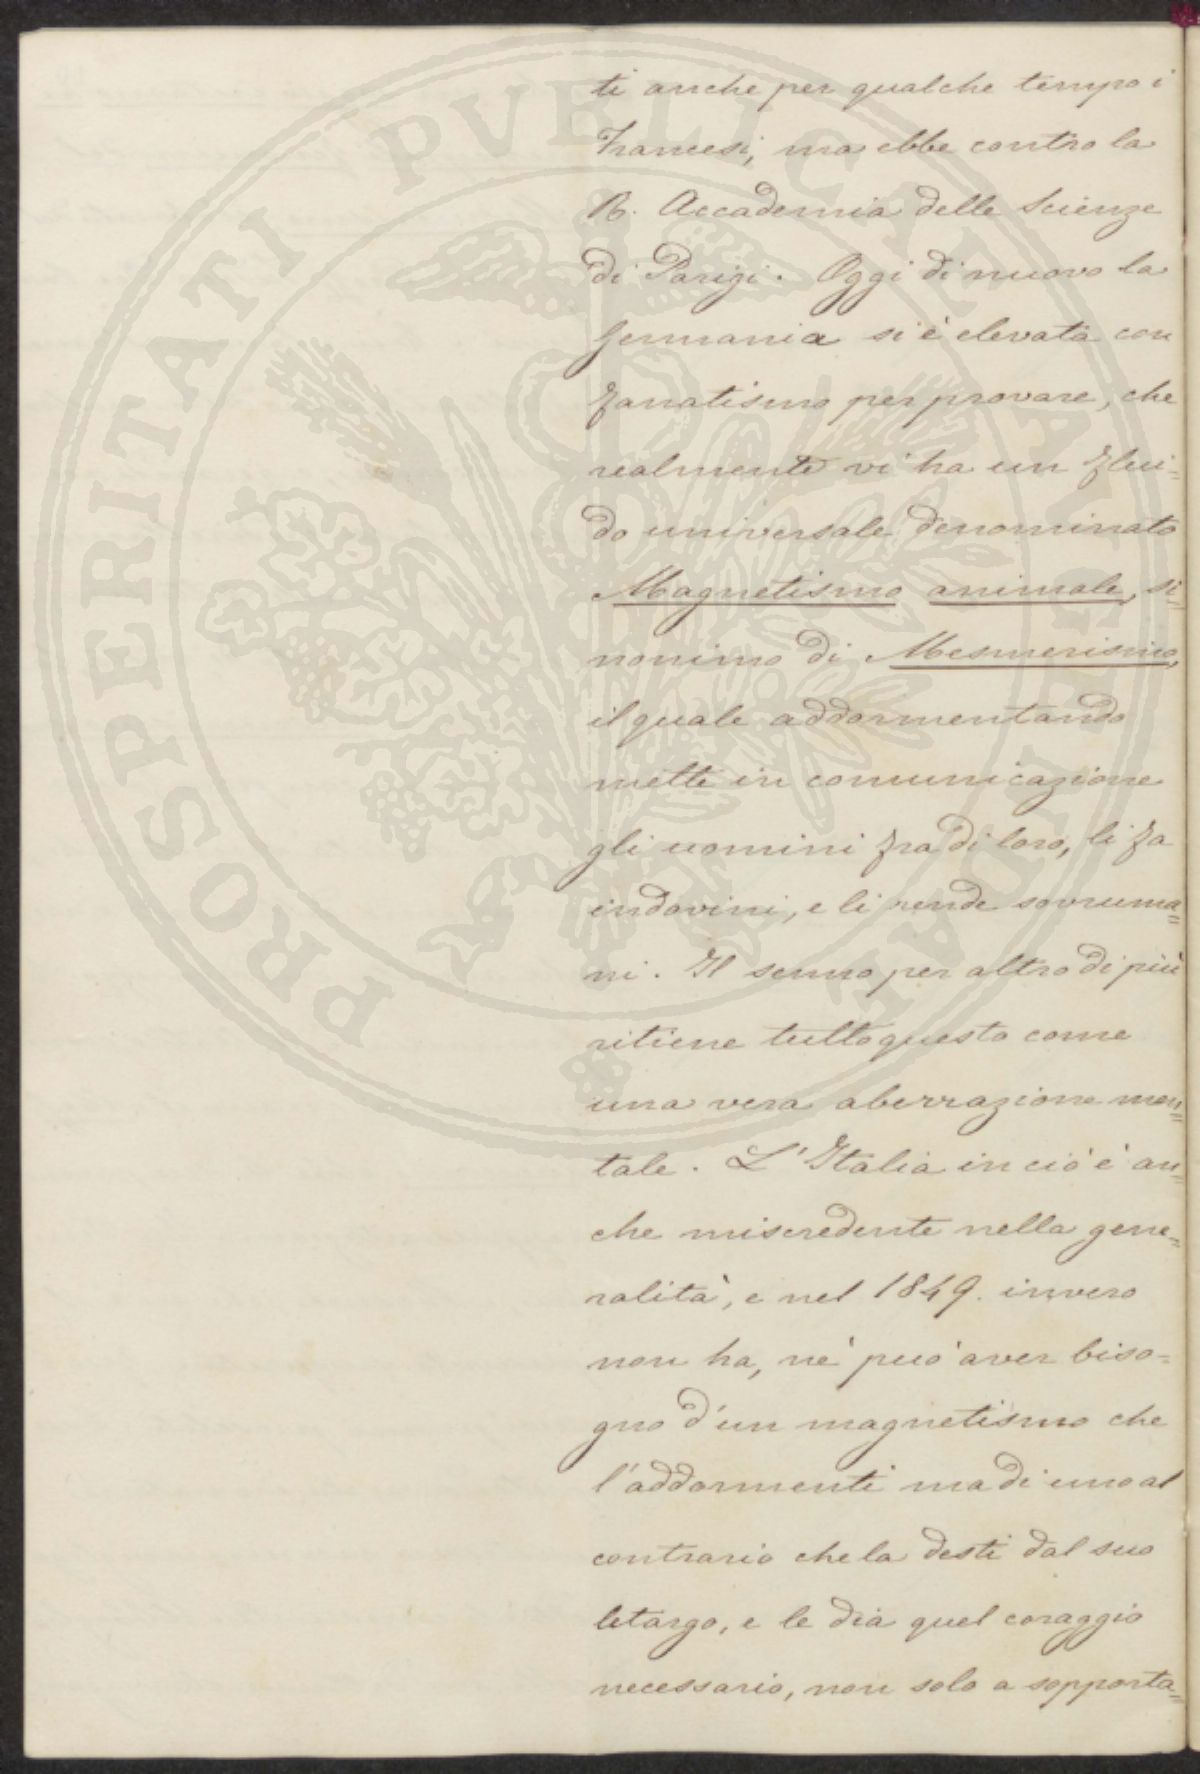 ti anche per qualche tempo i
Francesi, ma ebbe contro la
R. Accademia delle Scienze
di Parigi. Oggi di nuovo la
Germania si è elevata con
fanatismo per provare, che
realmente vi ha un flui-
do universale denominato
Magnetismo animale, si=
nonimo di Mesmerismo,
il quale addormentando
mette in comunicazione
gli uomini fra di loro, li fa
indovini, e li rende sovruma=
ni. Il senno per altro di più
ritiene tutto questo come
una vera aberrazione men=
tale. L'Italia in ciò è an=
che miscredente nella gene=
ralità, e nel 1849. invero
non ha, nè può aver biso=
gno d'un magnetismo che
l'addormenti ma di uno al
contrario che la desti dal suo
letargo, e le dia quel coraggio
necessario, non solo a sopporta=
PROSPERITATI PUBLICAE AUGENDAE